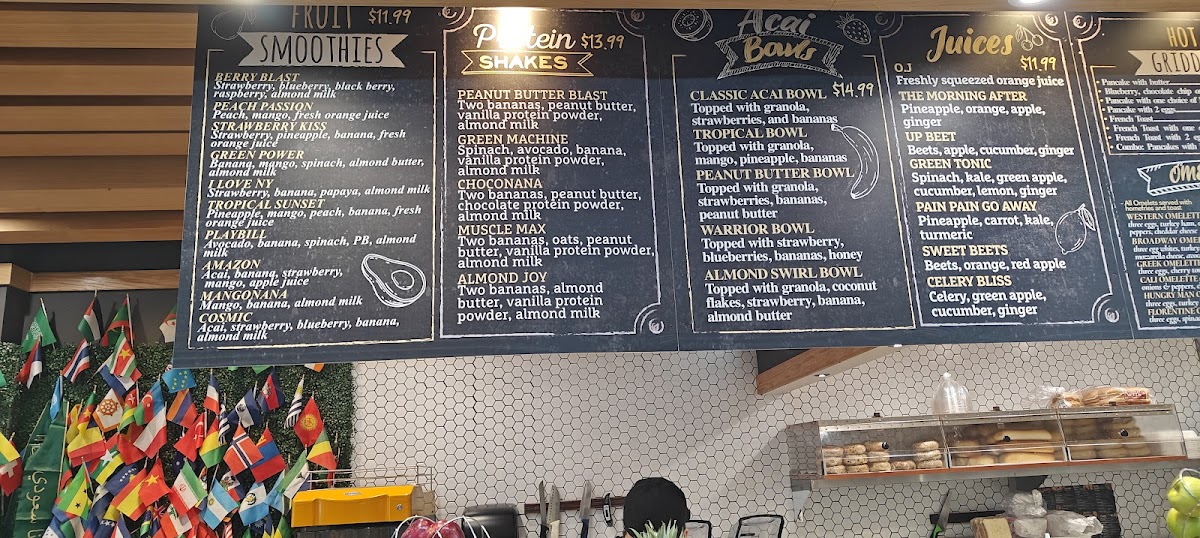 FRUIT $11.99
SMOOTHIES
BERRY BLAST
Strawberry, blueberry, black berry,
raspberry, almond milk
PEACH PASSION
Peach, mango, fresh orange juice
STRAWBERRY KISS
Strawberry, pineapple, banana, fresh
orange juice
GREEN POWER
Banana, mango, spinach, almond butter,
almond milk
I LOVE NY
Strawberry, banana, papaya, almond milk
TROPICAL SUNSET
Pineapple, mango, peach, banana, fresh
orange juice
PLAYBILL
Avocado, banana, spinach, PB, almond
milk
AMAZON
Acai, banana, strawberry,
mango, apple juice
MANGONANA
Mango, banana, almond milk
COSMIC
Acai, strawberry, blueberry, banana,
almond milk
Protein $13.99
SHAKES
PEANUT BUTTER BLAST
Two bananas, peanut butter,
vanilla protein powder,
almond milk
GREEN MACHINE
Spinach, avocado, banana,
vanilla protein powder,
almond milk
CHOCONANA
Two bananas, peanut butter,
chocolate protein powder,
almond milk
MUSCLE MAX
Two bananas, oats, peanut
butter, vanilla protein powder,
almond milk
ALMOND JOY
Two bananas, almond
butter, vanilla protein
powder, almond milk
Acai
Bowls
$14.99
CLASSIC ACAI BOWL
Topped with granola,
strawberries, and bananas
TROPICAL BOWL
Topped with granola,
mango, pineapple, bananas
PEANUT BUTTER BOWL
Topped with granola,
strawberries, bananas,
peanut butter
WARRIOR BOWL
Topped with strawberry,
blueberries, banana, honey
ALMOND SWIRL BOWL
Topped with granola, coconut
flakes, strawberry, banana,
almond butter
Juices
$11.99
O.J
Freshly squeezed orange juice
THE MORNING AFTER
Pineapple, orange, apple,
ginger
UP BEET
Beets, apple, cucumber, ginger
GREEN TONIC
Spinach, kale, green apple,
cucumber, lemon, ginger
PAIN PAIN GO AWAY
Pineapple, carrot, kale,
turmeric
SWEET BEETS
Beets, orange, red apple
CELERY BLISS
Celery, green apple,
cucumber, ginger
HOT
GRIDD
• Pancake with butter
• Blueberry, chocolate chip o
• Pancake with one choice of
• Pancake with 2 eggs
• French Toast
• French Toast with one
• French Toast with 2 eg
• Combo: Pancakes with
Om
All Omelets served with
homefries and toast
WESTERN OMELETT
three eggs, turkey ham,
peppers, cheddar cheese
BROADWAY OMELE
three egg whites, turkey
mozzarella cheese, avoc
GREEK OMELETTE
three eggs, cherry
CALI OMELETTE
onions & peppers,
HUNGRY MAX O
three eggs, turkey
FLORENTINE O
three eggs, spinac